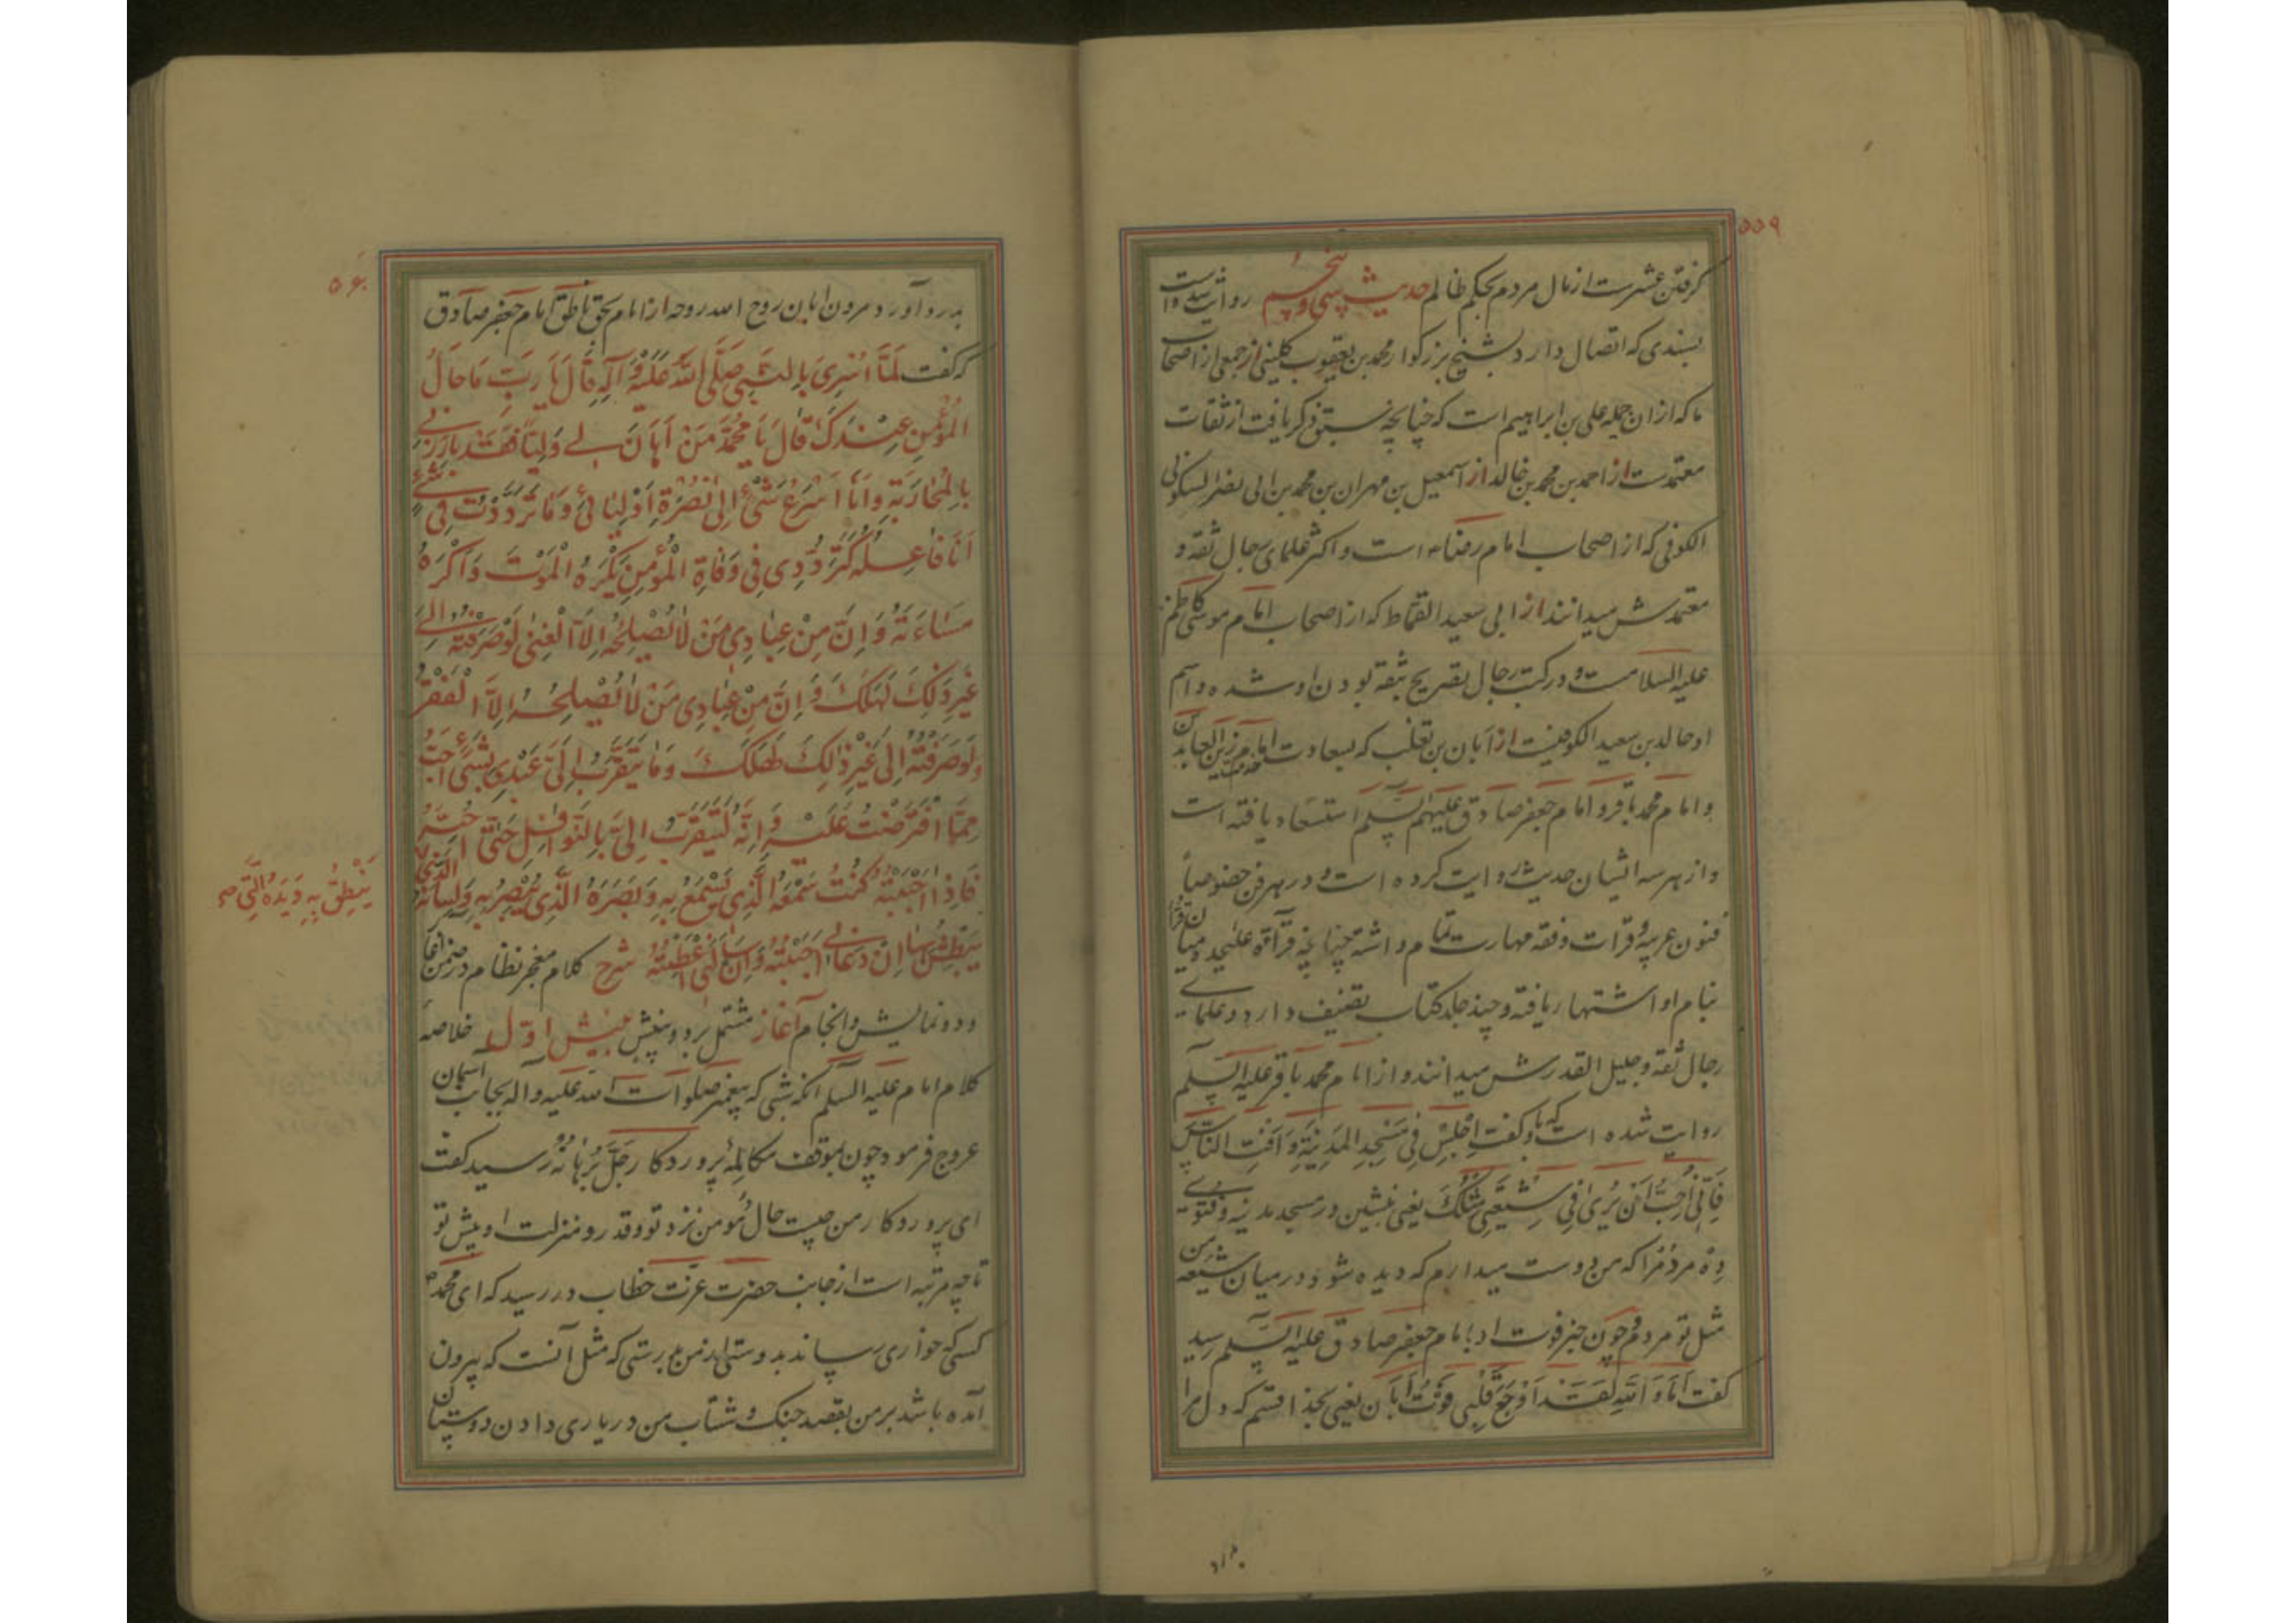 ۵۵۹
گرفتن عشرست از مال مردم بحکم ظالم حدیث سی و پنجم روایت است
بسندی که اتصال دارد بشیخ بزرگوار محمد بن یعقوب کلینی از جمعی از اصحاب
ما که از ان جمله علی بن ابراهیم است که چنانچه سبق ذکر یافت از ثقات
معتمدست از احمد بن محمد بن خالد از اسمعیل بن مهران بن محمد بن ابی نصر السکونی
الکوفی که از اصحاب امام رضاء است و اکثر علمای رجال ثقه و
معتمدش میدانند از ابی سعید القماط که از اصحاب امام موسی کاظم
علیه السلامست و در کتب رجال تصریح بثقه بودن او شده و اسم
او خالد بن سعید الکوفیست از ابان بن تغلب که بسعادت خدمت امام زین العابدین
و امام محمد باقر و امام جعفر صادق علیهم السلم استسعاد یافته است
و از هر سه ایشان حدیث روایت کرده است و در هر فن خصوصاً
فنون عربیه و قرات و فقه مهارت تمام داشته چنانچه قرآءة علیحده میان قرا
بنام او اشتهار یافته و چند جلد کتاب تصنیف دارد و علمای
رجال ثقه و جلیل القدرش میدانند و از امام محمد باقر علیه السلم
روایت شده است که باو گفت اِجْلِسْ فِی مَسْجِدِ المَدِینَةِ وَ اَفْتِ النَّاسَ
فَاِنِّی اُحِبُّ اَنْ یُرَی فِی شِیعَتِی مِثْلُکَ یعنی بنشین در مسجد مدینه و فتوی
دِه مردم را که من دوست میدارم که دیده شود در میان شیعه من
مثل تو مردم و چون خبر فوت او بامام جعفر صادق علیه السلم رسید
گفت اَمَا وَ اللهِ لَقَدْ اَوْجَعَ قَلْبِی مَوْتُ اَبَان یعنی بخدا قسم که دل مرا
بدرد
۵۶۰
بدرد آورد مردن ابان روح الله روحه از امام بحق ناطق امام جعفر صادق
که گفت لَمَّا اُسْرِیَ بِالنَّبِیِّ صَلَّی اللهُ عَلَیْهِ وَ آلِهِ قَالَ یَا رَبِّ مَا حَالُ
الْمُؤْمِنِ عِنْدَکَ قَالَ یَا مُحَمَّدُ مَنْ اَهَانَ لِی وَلِیّاً فَقَدْ بَارَزَنِی
بِالْمُحَارَبَةِ وَ اَنَا اَسْرَعُ شَیْءٍ اِلَی نُصْرَةِ اَوْلِیَائِی وَ مَا تَرَدَّدْتُ فِی شَیْءٍ
اَنَا فَاعِلُهُ کَتَرَدُّدِی فِی وَفَاةِ الْمُؤْمِنِ یَکْرَهُ الْمَوْتَ وَ اَکْرَهُ
مَسَاءَتَهُ وَ اِنَّ مِنْ عِبَادِی مَنْ لَا یُصْلِحُهُ اِلَّا الْغِنَی لَوْ صَرَفْتُهُ اِلَی
غَیْرِ ذَلِکَ لَهَلَکَ وَ اِنَّ مِنْ عِبَادِی مَنْ لَا یُصْلِحُهُ اِلَّا الْفَقْرُ
وَ لَوْ صَرَفْتُهُ اِلَی غَیْرِ ذَلِکَ لَهَلَکَ وَ مَا یَتَقَرَّبُ اِلَیَّ عَبْدِی بِشَیْءٍ اَحَبَّ
مِمَّا افْتَرَضْتُ عَلَیْهِ وَ اِنَّهُ لَیَتَقَرَّبُ اِلَیَّ بِالنَّوَافِلِ حَتَّی اُحِبَّهُ
فَاِذَا اَحْبَبْتُهُ کُنْتُ سَمْعَهُ الَّذِی یَسْمَعُ بِهِ وَ بَصَرَهُ الَّذِی یُبْصِرُ بِهِ وَ لِسَانَهُ الَّذِی
یَنْطِقُ بِهِ وَ یَدَهُ الَّتِی صح
یَبْطِشُ بِهَا اِنْ دَعَانِی اَجَبْتُهُ وَ اِنْ سَاَلَنِی اَعْطَیْتُهُ شرح کلام معجز نظام در ضمن آغاز
و دو نمایش و انجام آغاز مشتمل بر دو بینش بینش اول خلاصهٔ
کلام امام علیه السلم آنکه شبی که پیغمبر صلوات الله علیه و اله بجانب آسمان
عروج فرمود چون بموقف مکالمهٔ پروردکار جَلَّ بُرْهَانُهُ رسید گفت
ای پروردکار من چیست حال مُؤمن نزد تو و قدر و منزلت او پیش تو
تا چه مرتبه است از جانب حضرت عزت خطاب در رسید که ای محمد
کسی که خواری رساند بدوستی از من بدرستی که مثل آنست که بیرون
آمده باشد بر من بقصد جنک و شتاب من در یاری دادن دوستان